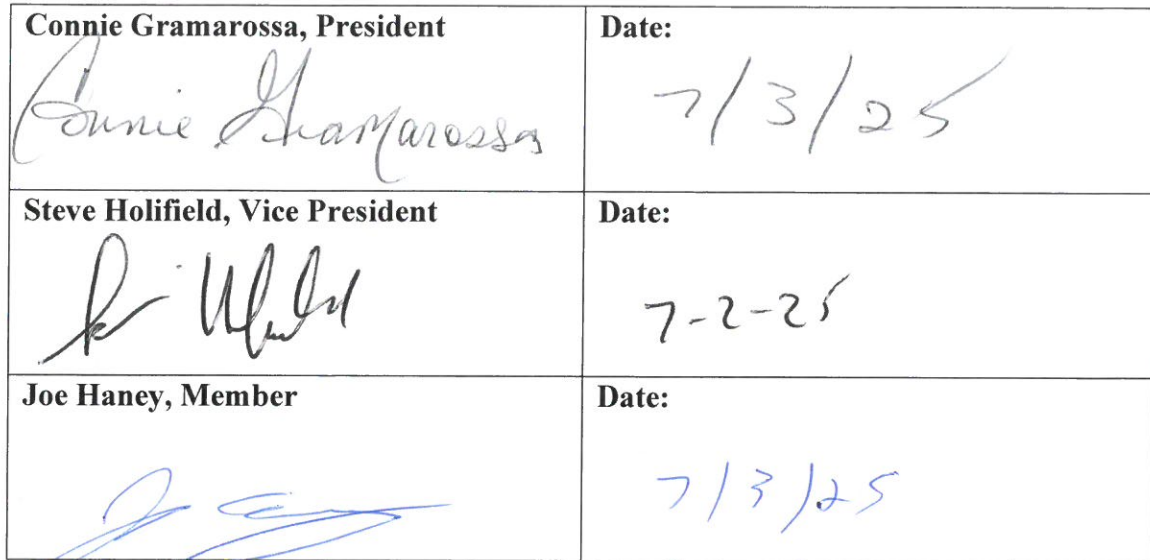 Connie Gramarossa, President Date:
Connie Gramarossa 7/3/25
Steve Holifield, Vice President Date:
7-2-25
Joe Haney, Member Date:
7/3/25